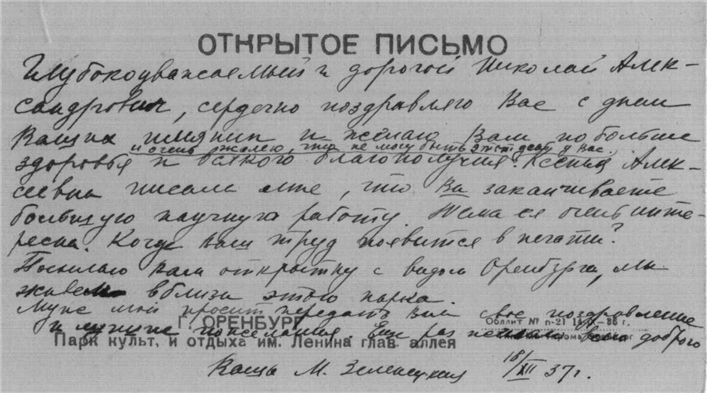 ОТКРЫТОЕ ПИСЬМО
Глубокоуважаемый и дорогой Николай Алек-
сандрович, сердечно поздравляю Вас с днем
Ваших именин и желаю Вам побольше
и очень жалею, что не могу быть этот день у Вас.
здоровья и всякого благополучия. Ксения Алек-
сеевна писала мне, что Вы заканчиваете
большую научную работу. Тема ея очень инте-
ресна. Когда Ваш труд появится в печати?
Посылаю Вам открытку с видом Оренбурга, мы
живем вблизи этого парка.
Муж мой просит передать Вам свое поздравление
и лучшие пожелания. Еще раз всего доброго
Г. ОРЕНБУРГ
Обллит № п-21
Парк культ. и отдыха им. Ленина глав. аллея
Ваша М.
16/XII 37 г.